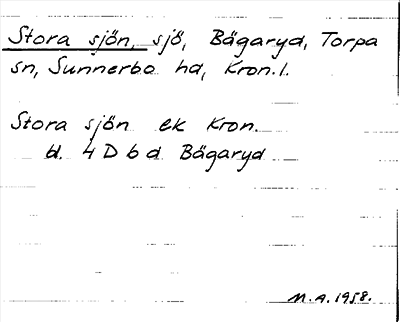 Stora sjön, sjö, Bägaryd, Torpa
sn, Sunnerbo hd, Kron.l.
Stora sjön ek Kron.
bl. 4 D b d Bägaryd
M.A. 1958.